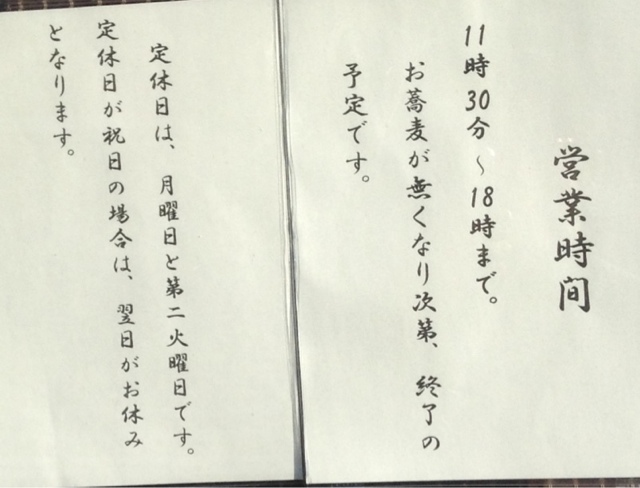 営業時間
11時30分~18時まで。
お蕎麦が無くなり次第、終了の
予定です。
定休日は、月曜日と第二火曜日です。
定休日が祝日の場合は、翌日がお休み
となります。